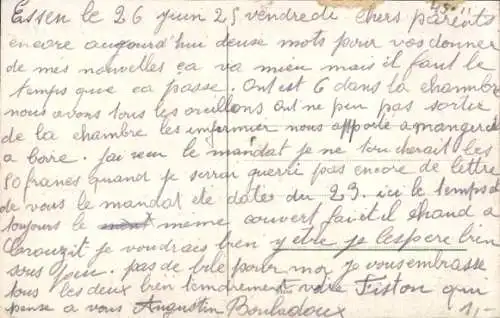 Essen le 26 juin 25 vendredi chers parents
encore aujourd'hui deuse mots pour vos donner
de mes nouvelles ca va mieu mais il faut le
temps que ca passe. Ont est 6 dans la chambre
nous avons tous les oreillons ont ne peu pas sortir
de la chambre les infirmier nous apporte a manger et
a boire. J'ai reçu le mandat je ne toucherait les
50 francs quand je serrai guerri pas encore de lettre
de vous le mandat été daté du 23. ici le temps
toujours le même couvert fait il chaud a
je voudrais bien y être je l'espere bien
sous peu. pas de bile pour moi je vous embrasse
tous les deux bien tendrement votre Fiston qui
pense a vous Augustin Bouladoux 1,-